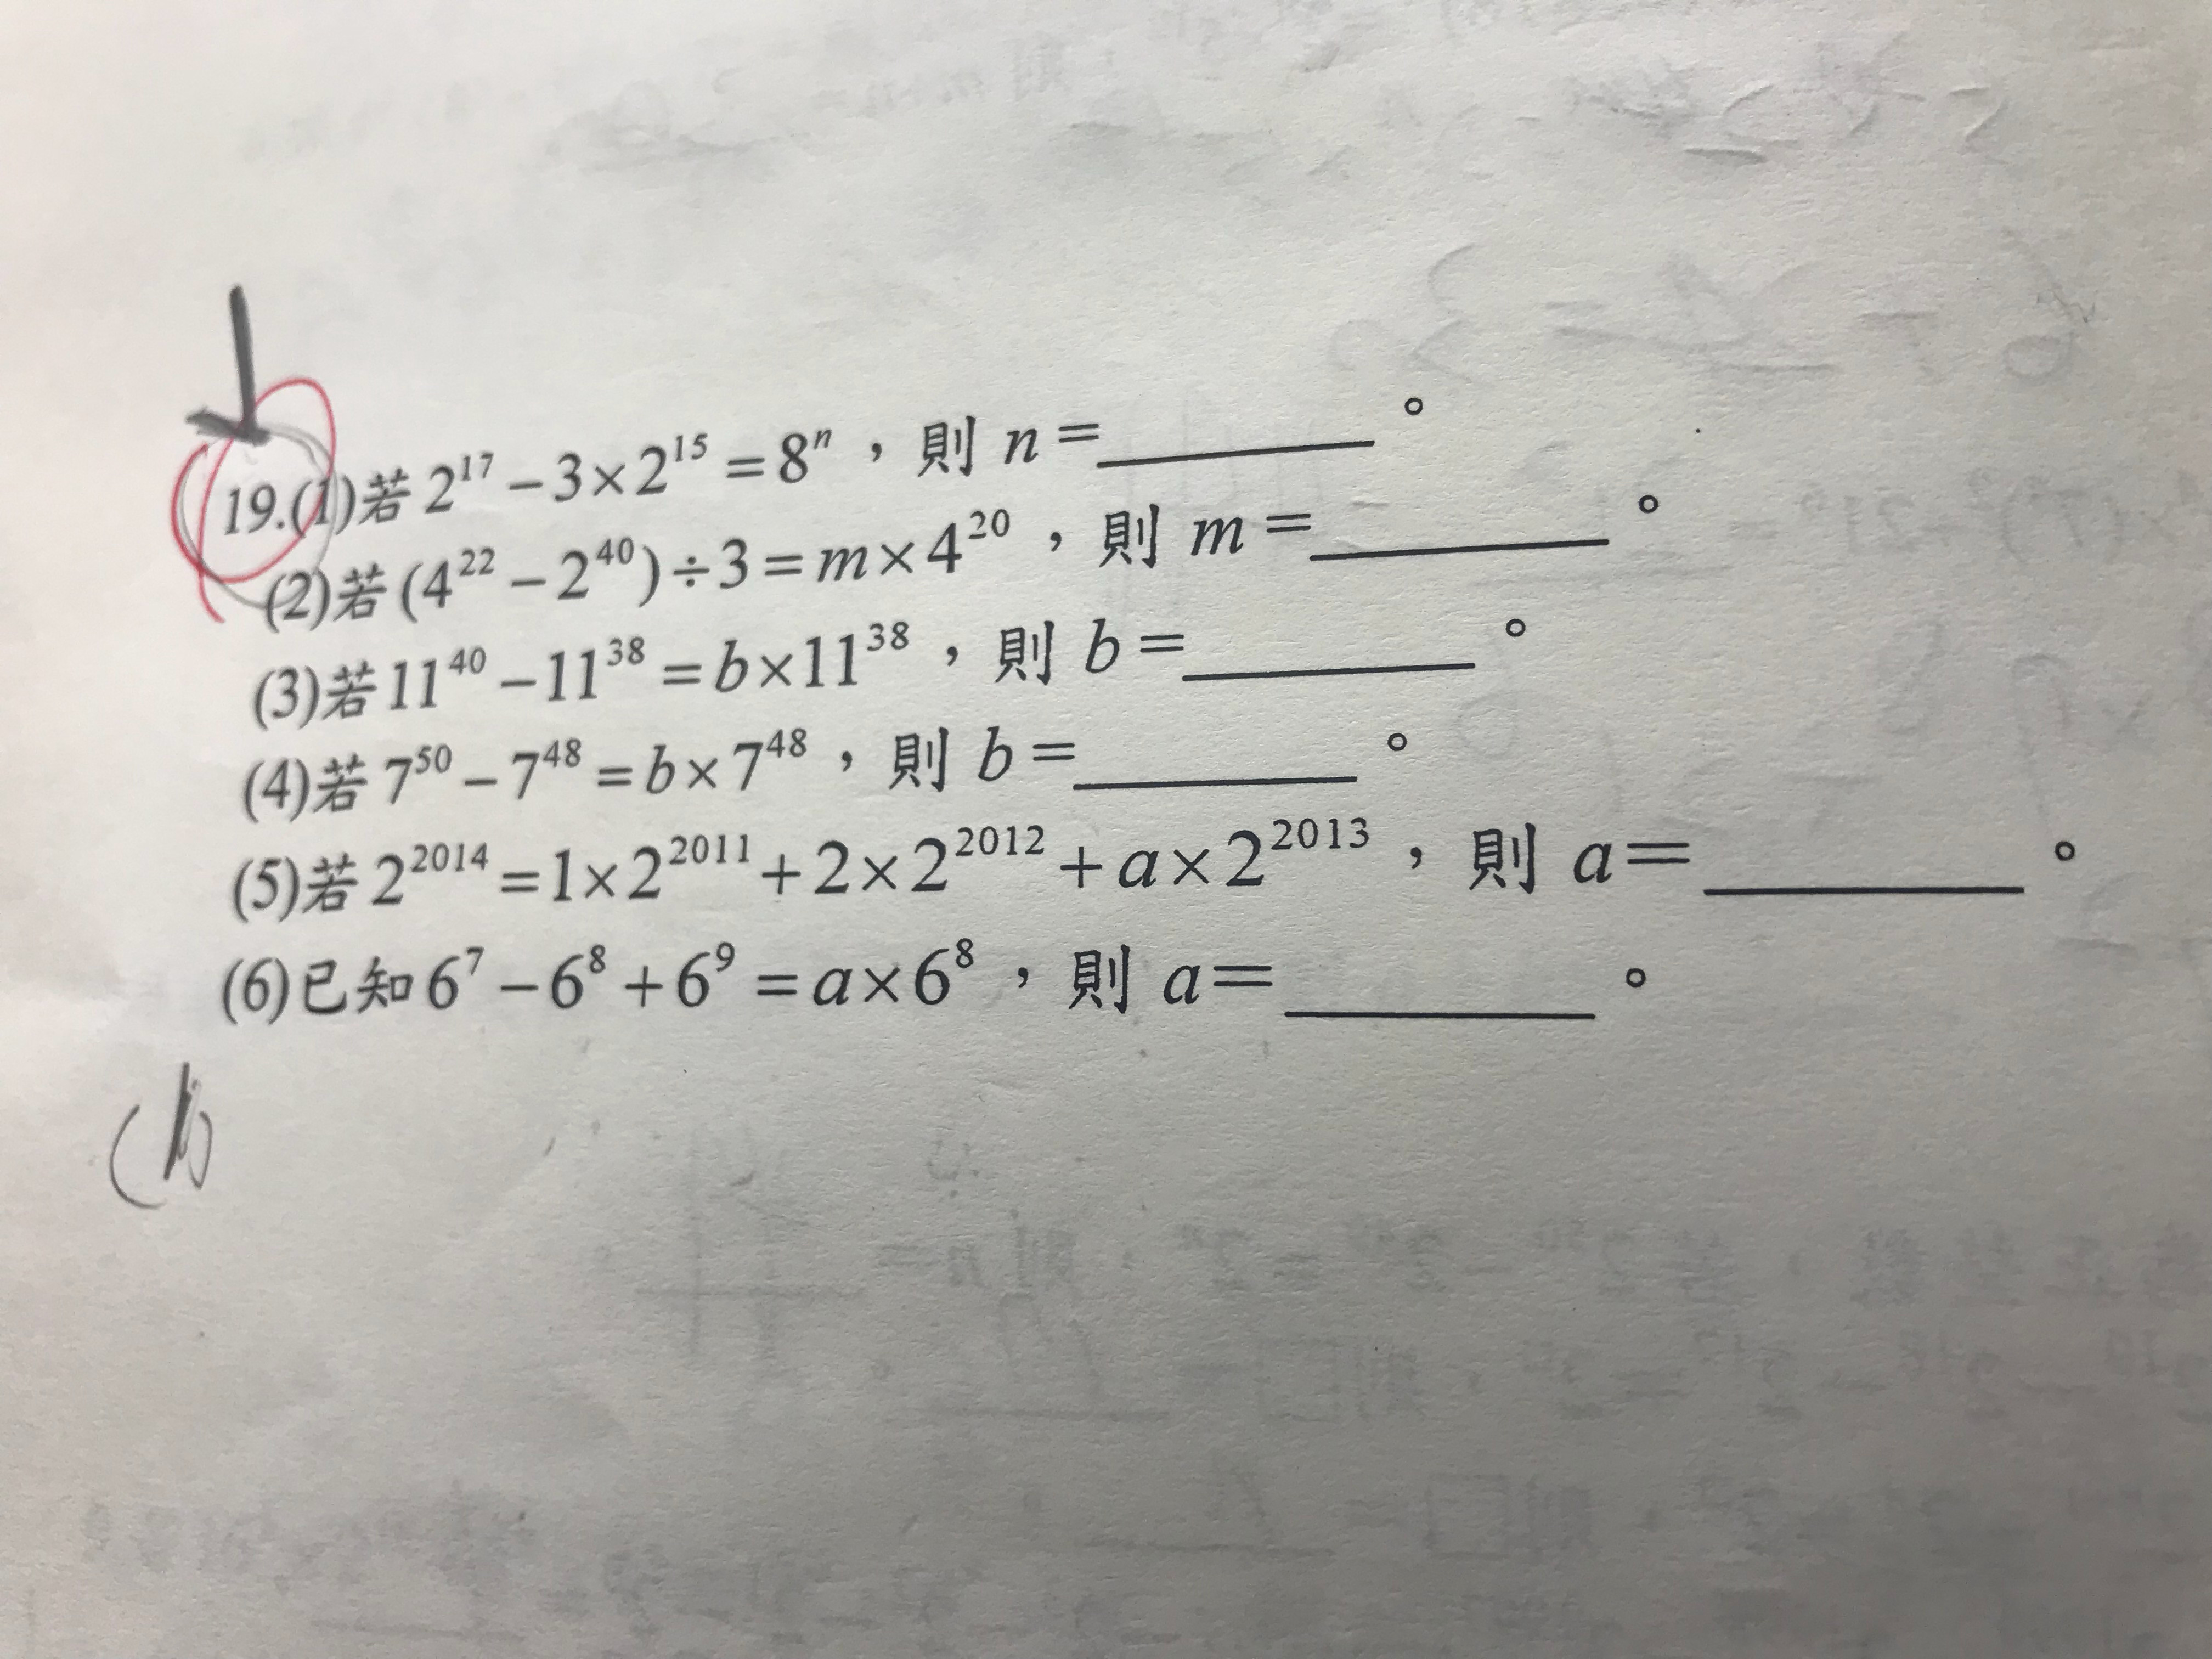 19.(1)若 2¹⁷－3×2¹⁵＝8ⁿ，則 n＝______。
(2)若 (4²²－2⁴⁰)÷3＝m×4²⁰，則 m＝______。
(3)若 11⁴⁰－11³⁸＝b×11³⁸，則 b＝______。
(4)若 7⁵⁰－7⁴⁸＝b×7⁴⁸，則 b＝______。
(5)若 2²⁰¹⁴＝1×2²⁰¹¹＋2×2²⁰¹²＋a×2²⁰¹³，則 a＝______。
(6)已知 6⁷－6⁸＋6⁹＝a×6⁸，則 a＝______。